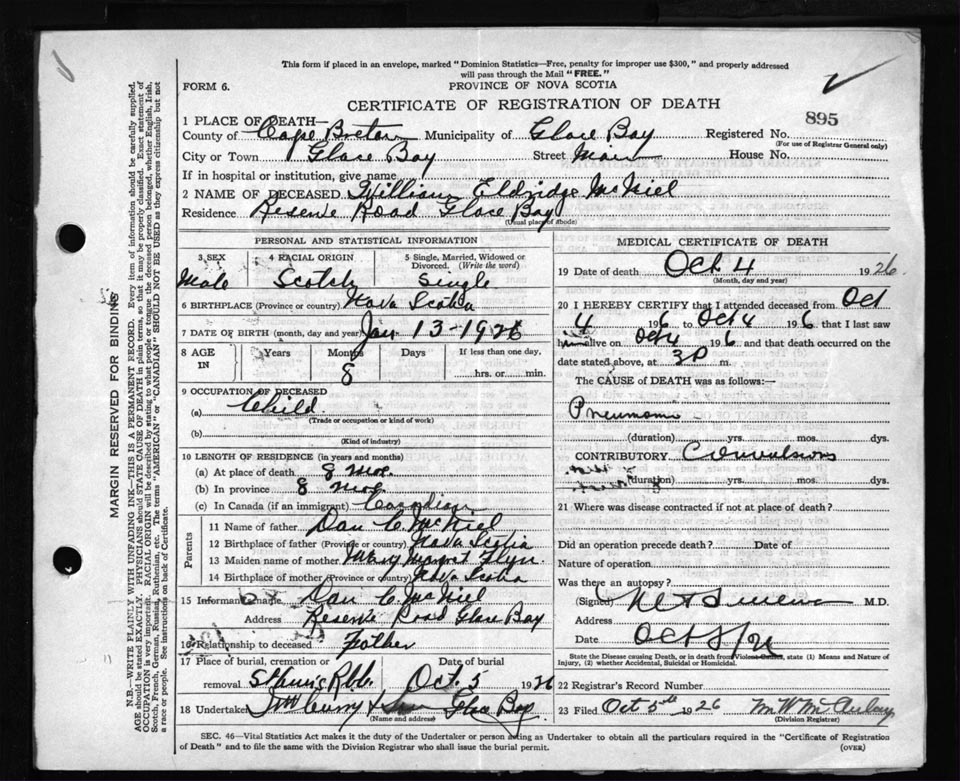 This form if placed in an envelope, marked "Dominion Statistics—Free, penalty for improper use $300," and properly addressed
will pass through the Mail "FREE."
FORM 6.
PROVINCE OF NOVA SCOTIA
CERTIFICATE OF REGISTRATION OF DEATH
895
1 PLACE OF DEATH—
County of Cape Breton Municipality of Glace Bay Registered No.
(For use of Registrar General only)
City or Town Glace Bay Street Main House No.
If in hospital or institution, give name
2 NAME OF DECEASED William Eldridge McNiel
Residence Reserve Road Glace Bay
(Usual place of abode)
PERSONAL AND STATISTICAL INFORMATION
3 SEX 4 RACIAL ORIGIN 5 Single, Married, Widowed or Divorced. (Write the word)
Male Scotch Single
6 BIRTHPLACE (Province or country) Nova Scotia
7 DATE OF BIRTH (month, day and year) Jan 13-1926
8 AGE IN Years Months Days If less than one day,
8 hrs. or min.
9 OCCUPATION OF DECEASED
(a) Child
(Trade or occupation or kind of work)
(b)
(Kind of industry)
10 LENGTH OF RESIDENCE (in years and months)
(a) At place of death 8 mos.
(b) In province 8 mos
(c) In Canada (if an immigrant) Canadian
Parents
11 Name of father Dan C. McNiel
12 Birthplace of father (Province or country) Nova Scotia
13 Maiden name of mother Mary Margret Flyn.
14 Birthplace of mother (Province or country) Nova Scotia
15 Informant's name Dan C. McNiel
Address Reserve Road Glace Bay
16 Relationship to deceased Father
17 Place of burial, cremation or removal Date of burial
Oct. 5 1926
18 Undertaker Glace Bay
(Name and address)
MEDICAL CERTIFICATE OF DEATH
19 Date of death Oct 4 1926
(Month, day and year)
20 I HEREBY CERTIFY that I attended deceased from Oct
4 1926 to Oct 4 1926 that I last saw
him alive on Oct 4 1926 and that death occurred on the
date stated above, at 3 P m.
The CAUSE of DEATH was as follows:—
Pneumonia
(duration) yrs. mos. dys.
CONTRIBUTORY Convulsions
(duration) yrs. mos. dys.
21 Where was disease contracted if not at place of death?
Did an operation precede death? Date of
Nature of operation
Was there an autopsy?
(Signed) M.D.
Address
Date Oct 5/26
State the Disease causing Death, or in death from Violent Causes, state (1) Means and Nature of
Injury, (2) whether Accidental, Suicidal or Homicidal.
22 Registrar's Record Number
23 Filed Oct 5th 1926 M W McAulay
(Division Registrar)
SEC. 46—Vital Statistics Act makes it the duty of the Undertaker or person acting as Undertaker to obtain all the particulars required in the "Certificate of Registration
of Death" and to file the same with the Division Registrar who shall issue the burial permit.
(OVER)
MARGIN RESERVED FOR BINDING
N.B.—WRITE PLAINLY WITH UNFADING INK—THIS IS A PERMANENT RECORD. Every item of information should be carefully supplied.
AGE should be stated EXACTLY. PHYSICIANS should STATE CAUSE OF DEATH in plain terms, so that it may be properly classified. Exact statement of
OCCUPATION is very important. RACIAL ORIGIN will be described by stating to what people or tongue the deceased person belonged, whether English, Irish,
Scotch, French, German, Russian, Ruthenian, etc. The terms "AMERICAN" or "CANADIAN" SHOULD NOT BE USED as they express citizenship but not
a race or people. See instructions on back of Certificate.